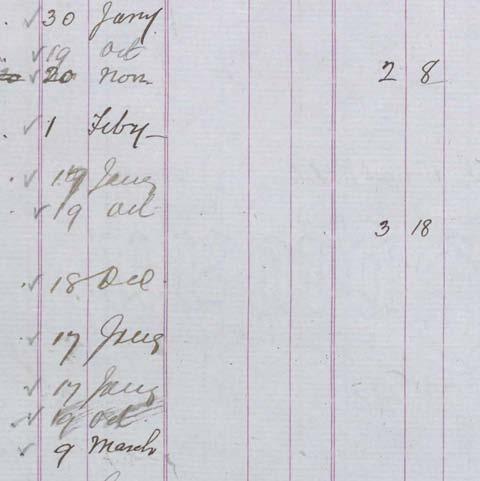 30 Jany
19 oct
20 Nov 2 8
1 Feby
19 Jany
19 oct
3 18
18 Dec
17 Jany
17 Jany
19 oct
9 March